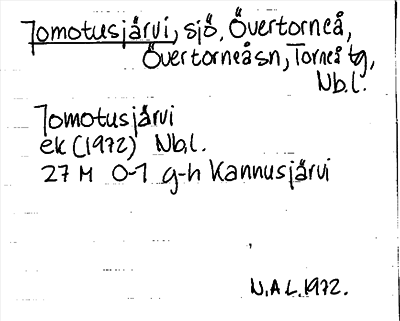 Jomotusjärvi, sjö, Övertorneå,
Övertorneåsn, Torneå tg,
Nb.l.
Jomotusjärvi
ek (1972) Nb.l.
27 M 0-1 g-h Kannusjärvi
N.A L. 1972.